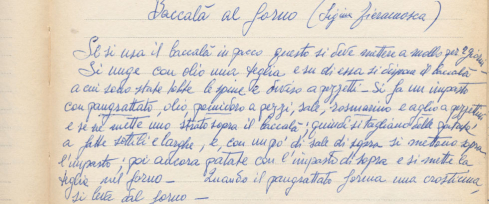 Baccalà al forno (Sig.ina Fieramosca)
Se si usa il baccalà in pacco questo si deve mettere a mollo per 2 giorni -
Si unge con olio una teglia e su di essa si dispone il baccalà
a cui sono state tolte le spine e diviso a pezzetti - Si fa un impasto
con pangrattato, olio, pomidoro a pezzi, sale, rosmarino e aglio a pezzettini
e se ne mette uno strato sopra il baccalà; quindi si tagliano delle patate
a fette sottili e larghe, e, con un po' di sale di sopra si mettono sopra
l'impasto; poi ancora patate con l'impasto di sopra e si mette la
teglia nel forno - Quando il pangrattato forma una crosticina,
si leva dal forno -